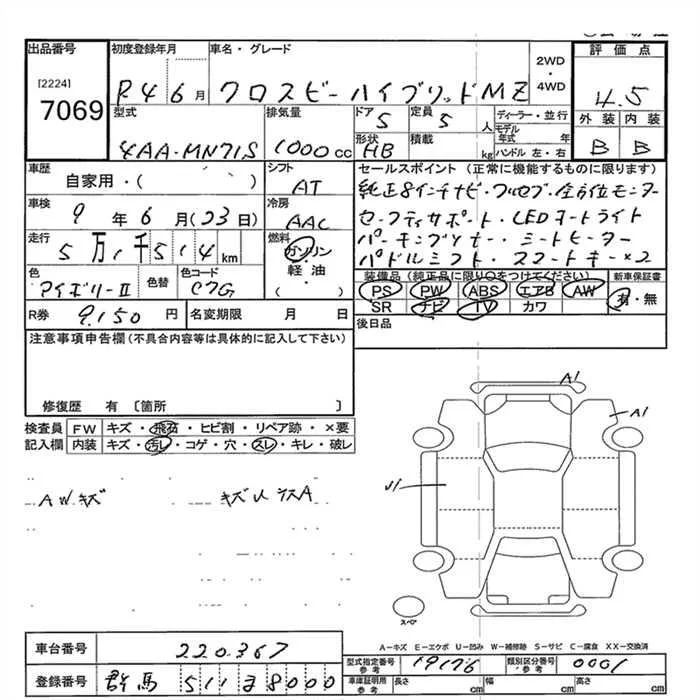 出品番号 初度登録年月 車名・グレード 2WD ・ 4WD 評価点
[2224]
7069 R4 6月 クロスビーハイブリッドMZ 4.5
型式 排気量 ドア 定員 ディーラー・並行 外装 内装
5 5人 モデル年式 年
4AA-MN71S 1000cc 形状 積載 B B
HB kg ハンドル 左・右
車歴 シフト セールスポイント(正常に機能するものに限ります)
自家用・( ) AT 純正8インチナビ・フルセグ・全方位モニター
車検 冷房 セーフティサポート・LEDオートライト
9年6月(23日) AAC
走行 燃料 パーキングソナー・シートヒーター
5万1千514km ガソリン・軽油・( ) パドルシフト・スマートキー×2
色 色替 色コード 装備品(純正品に限り○をつけてください) 新車保証書
アイボリーII C7G PS PW ABS エアB AW 有・無
R券 9,150円 名変期限 月 日 SR ナビ TV カワ
注意事項申告欄(不具合内容等は具体的に記入して下さい) 後日品
修復歴 有〔箇所 〕
検査員 FW キズ・飛石・ヒビ割・リペア跡・×要
記入欄 内装 キズ・汚レ・コゲ・穴・スレ・キレ・破レ
A1
A1
U1
AWキズ
スペア
A-キズ E-エクボ U-凹み W-補修跡 S-サビ C-腐食 XX-交換済
車台番号 220367 型式指定番号 参考 19176 類別区分番号 参考 0001
登録番号 群馬 511 8000 車庫証明用 参考 長さ cm 幅 cm 高さ cm